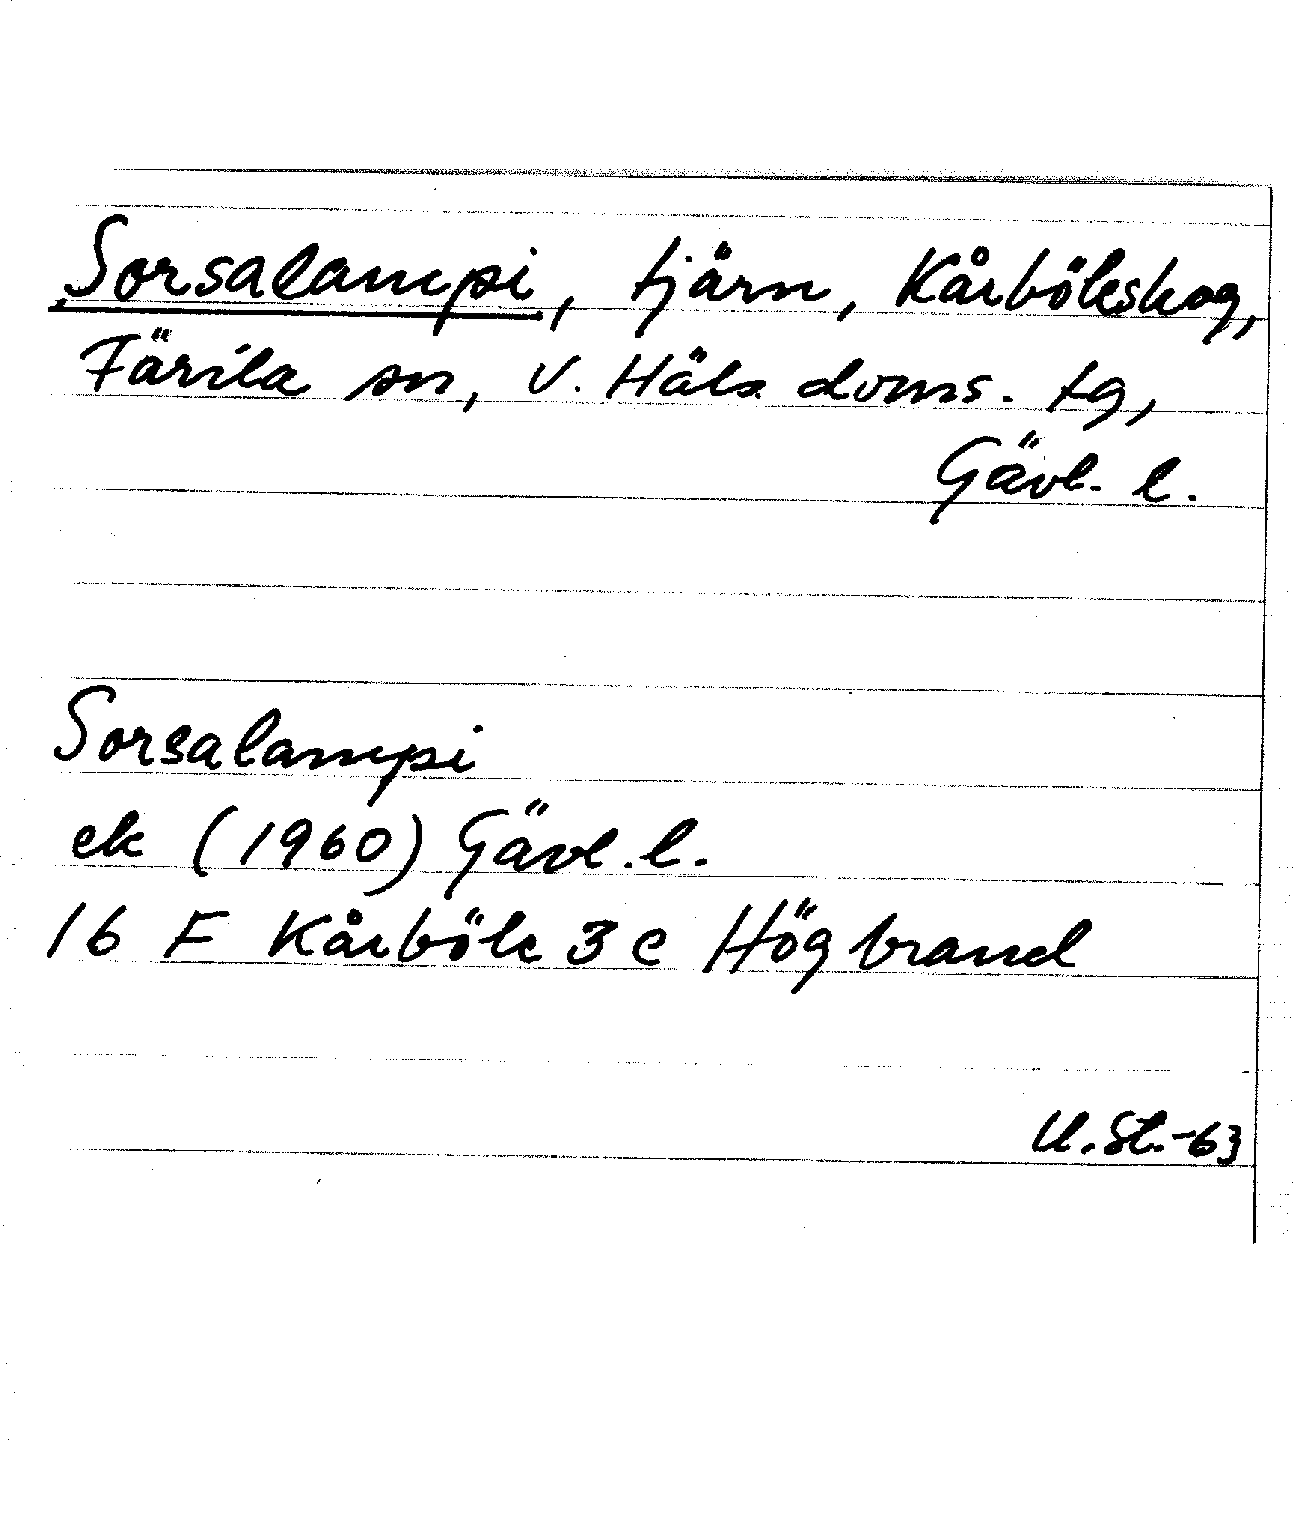 Sorsalampi, tjärn, Kårböleskog,
Färila sn, V. Häls doms. tg,
Gävl. l.
Sorsalampi
ek (1960) Gävl. l.
16 F Kårböle 3 c Högbrand
U. St. -63